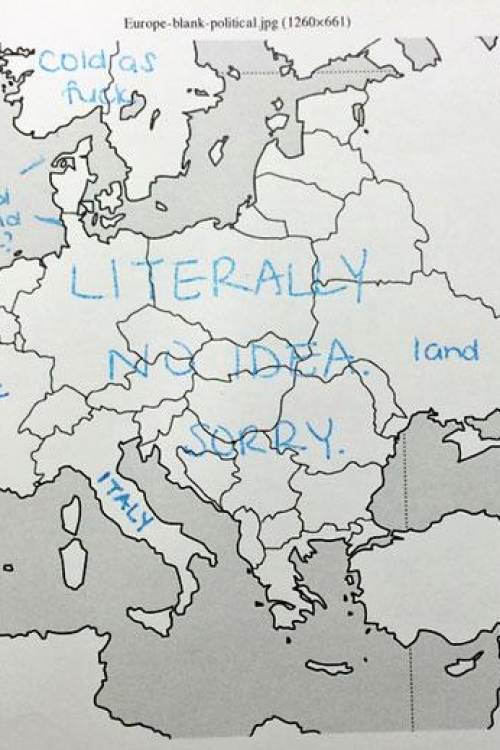 Europe-blank-political.jpg (1260×661)
Cold as
fuck
LITERALLY
NO IDEA.
land
SORRY.
ITALY